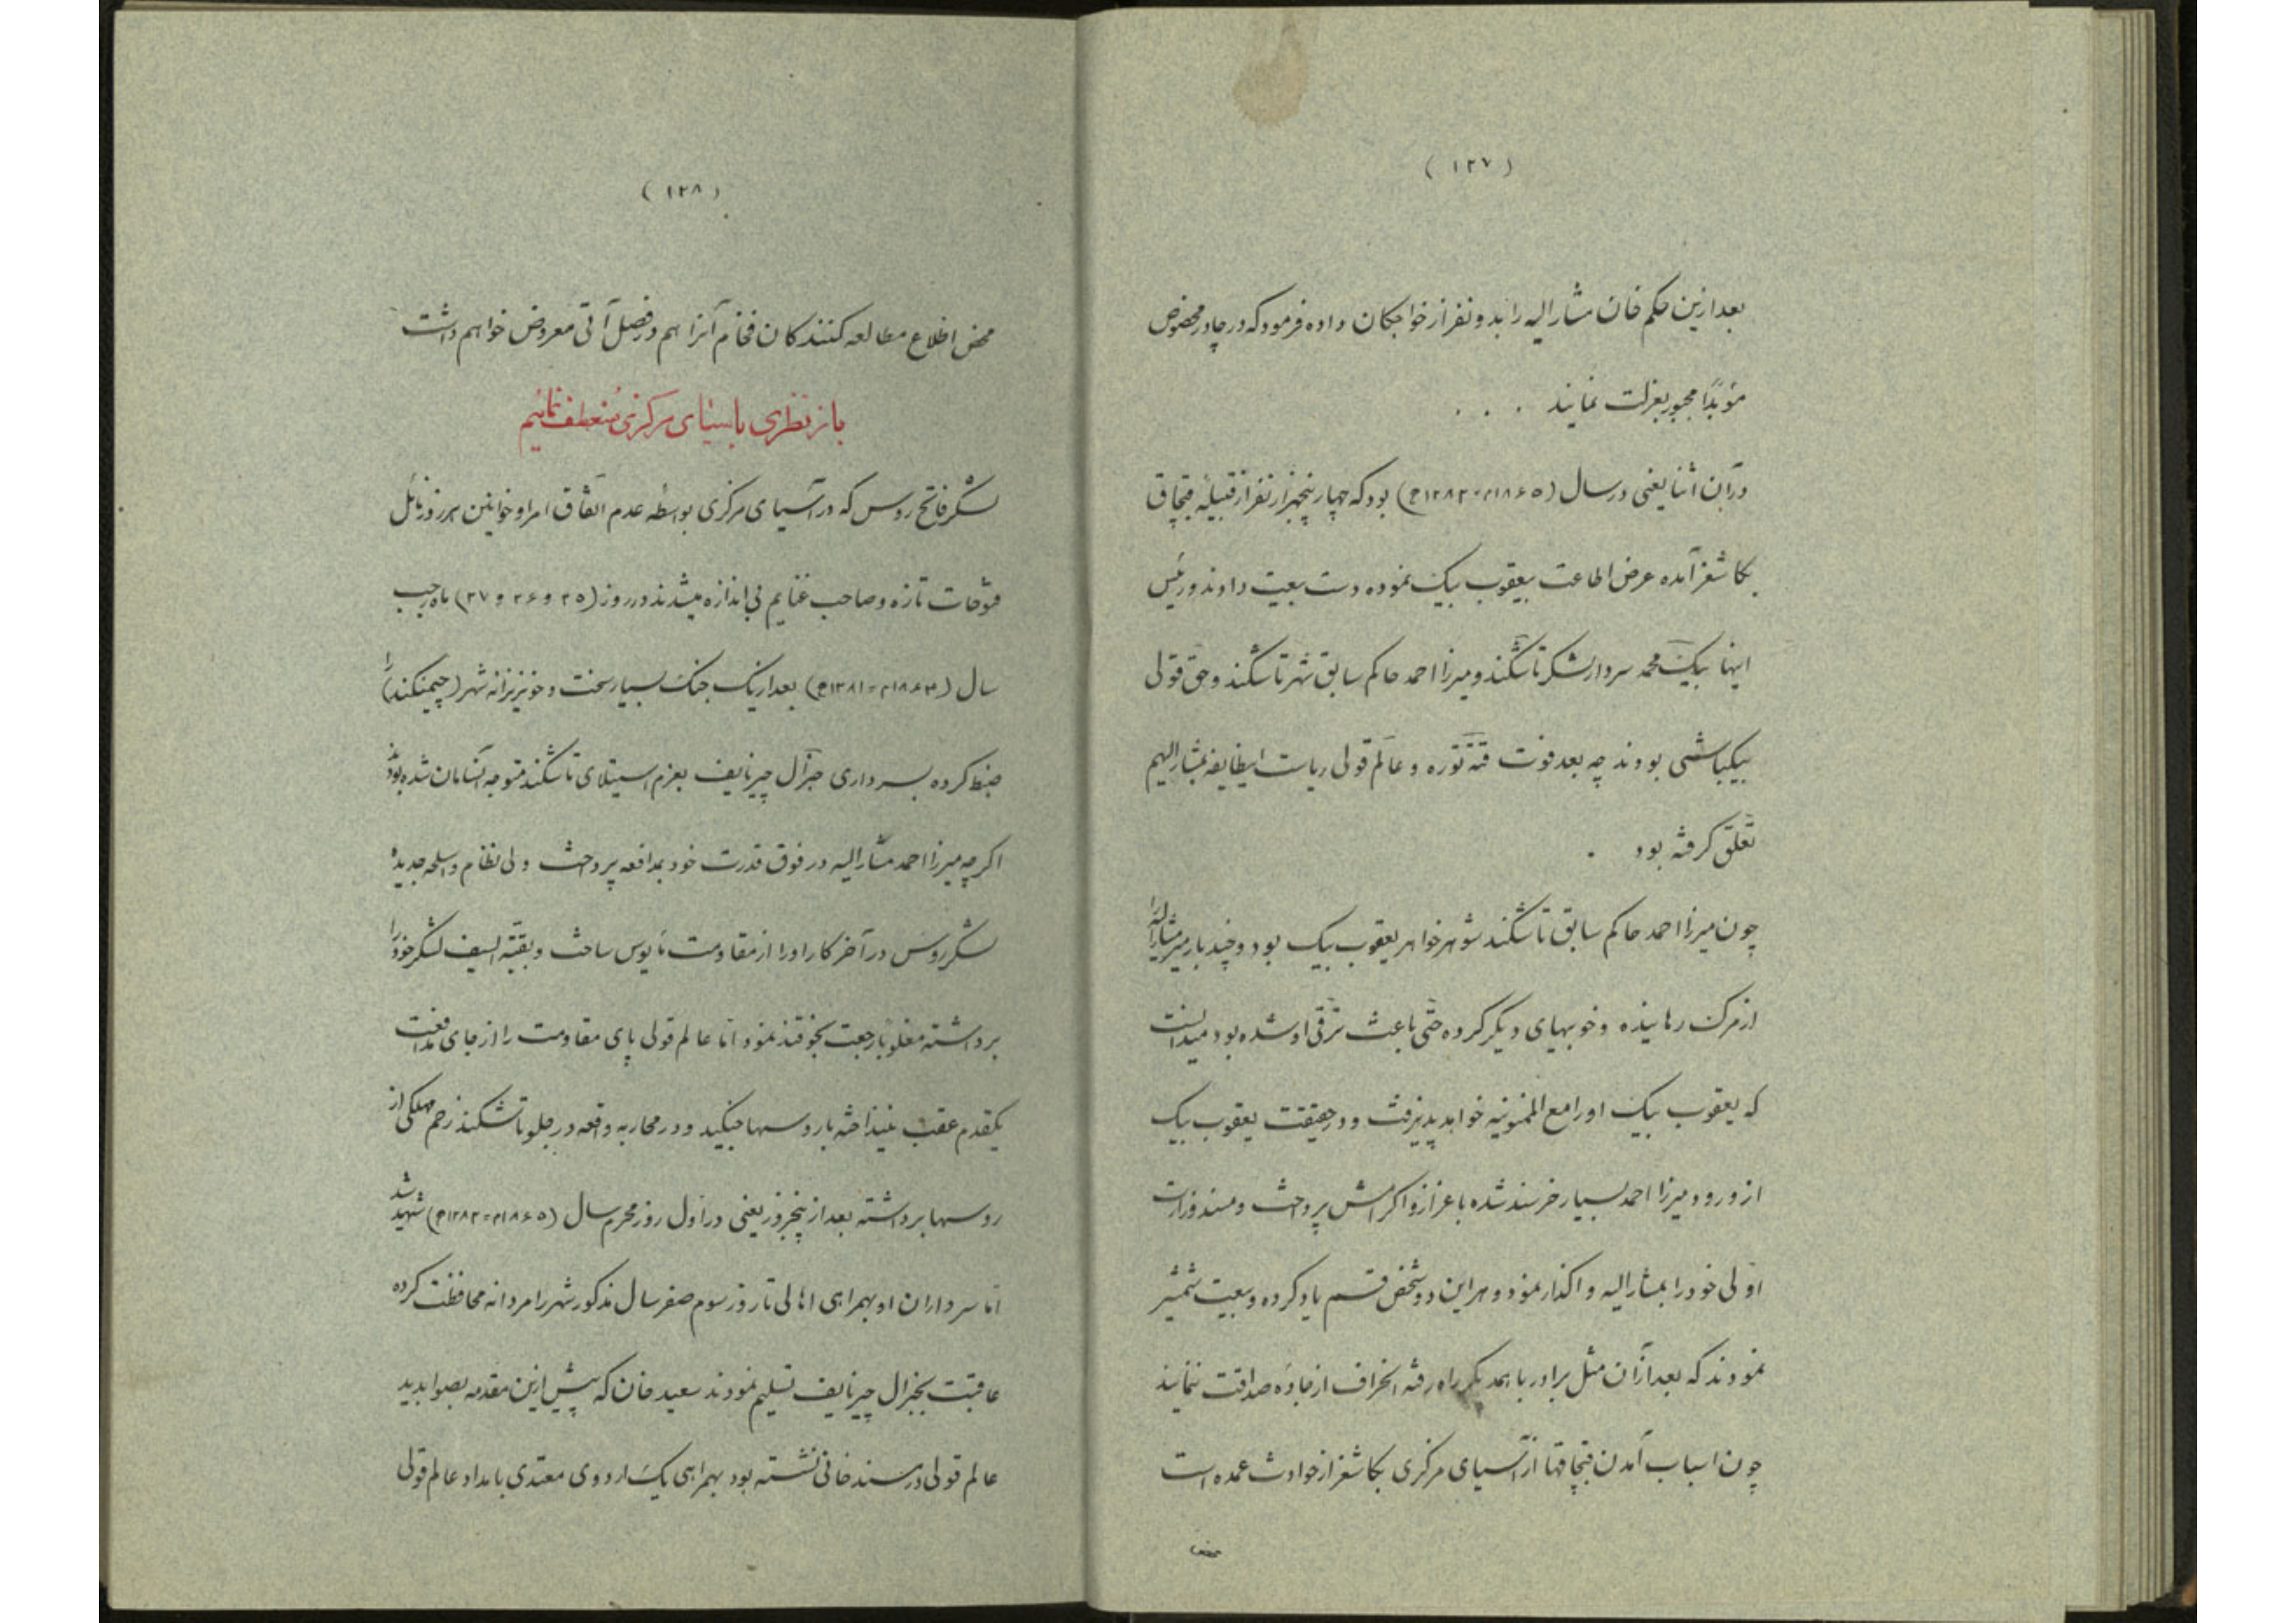 (۱۲۷)
بعد ازین حکم خان مشار الیه را بدو نفر از خواجکان داده فرمود که در چادر مخصوص
مؤبداً مجبور بعزلت نمایند . . .
در آن اثنا یعنی در سال (۱۸۶۵م=۱۲۸۲ه) بود که چهار پنجهزار نفر از قبیلهٔ قبچاق
بکاشغر آمده عرض اطاعت بیعقوب بیک نموده دست بیعت دادند و رئیس
اینها بیک محمد سردار لشکر تاشکند و میرزا احمد حاکم سابق شهر تاشکند و حق قولی
بیکباشی بودند چه بعد فوت قنه توره و عالم قولی ریاست اینطایفه بمشار الیهم
تعلق کرفته بود .
چون میرزا احمد حاکم سابق تاشکند شوهر خواهر یعقوب بیک بود و چند بار میر مشار الیه را
از مرک رهانیده و خوبیهای دیکر کرده حتی باعث ترقی او شده بود میدانست
که یعقوب بیک او را مع الممنونیه خواهد پذیرفت و در حقیقت یعقوب بیک
از ورود میرزا احمد بسیار خرسند شده باعزاز و اکرامش پرداخت و مسند وزارت
اولی خود را بمشار الیه واکذار نمود و هر این دو شخص قسم یاد کرده و بیعت شمشیر
نمودند که بعد از آن مثل برادر با همدیکر راه رفته انحراف از جادهٔ صداقت ننمایند
چون اسباب آمدن قبچاقها از آسیای مرکزی بکاشغر از حوادث عمده است
محض
(۱۲۸)
محض اطلاع مطالعه کنندکان فخام آنرا هم در فصل آتی معروض خواهم داشت
باز نظری بآسیای مرکزی منعطف نمائیم
لشکر فاتح روس که در آسیای مرکزی بواسطه عدم اتفاق امرا و خوانین هر روز نائل
فتوحات تازه و صاحب غنایم بی اندازه میشدند در روز (۲۵ و ۲۶ و ۲۷) ماه رجب
سال (۱۸۶۴م=۱۲۸۱ه) بعد از یک جنک بسیار سخت و خونریزانه شهر (چیمنکند) را
ضبط کرده بسرداری جنرال چیرنایف بعزم استیلای تاشکند متوجه آنسامان شده بودند
اکرچه میرزا احمد مشار الیه در فوق قدرت خود بمدافعه پرداخت ولی نظام و اسلحه جدیده
لشکر روس در آخر کار او را از مقاومت مایوس ساخت و بقیة السیف لشکر خود را
برداشته مغلوباً رجعت بخوقند نمود اما عالم قولی پای مقاومت را از جای مدافعت
یکقدم عقب نینداخته با روسها جنکید و در محاربه واقعه در جلو تاشکند زخم مهلکی از
روسها برداشته بعد از پنجروز یعنی در اول روز محرم سال (۱۸۶۵م=۱۲۸۲ه) شهید شد
اما سرداران او بهمراهی اهالی تا روز سوم صفر سال مذکور شهر را مردانه محافظت کرده
عاقبت بجنرال چیرنایف تسلیم نمودند سعید خان که پیش ازین مقدمه بصوابدید
عالم قولی در مسند خانی نشسته بود بهمراهی یک اردوی معتدی بامداد عالم قولی